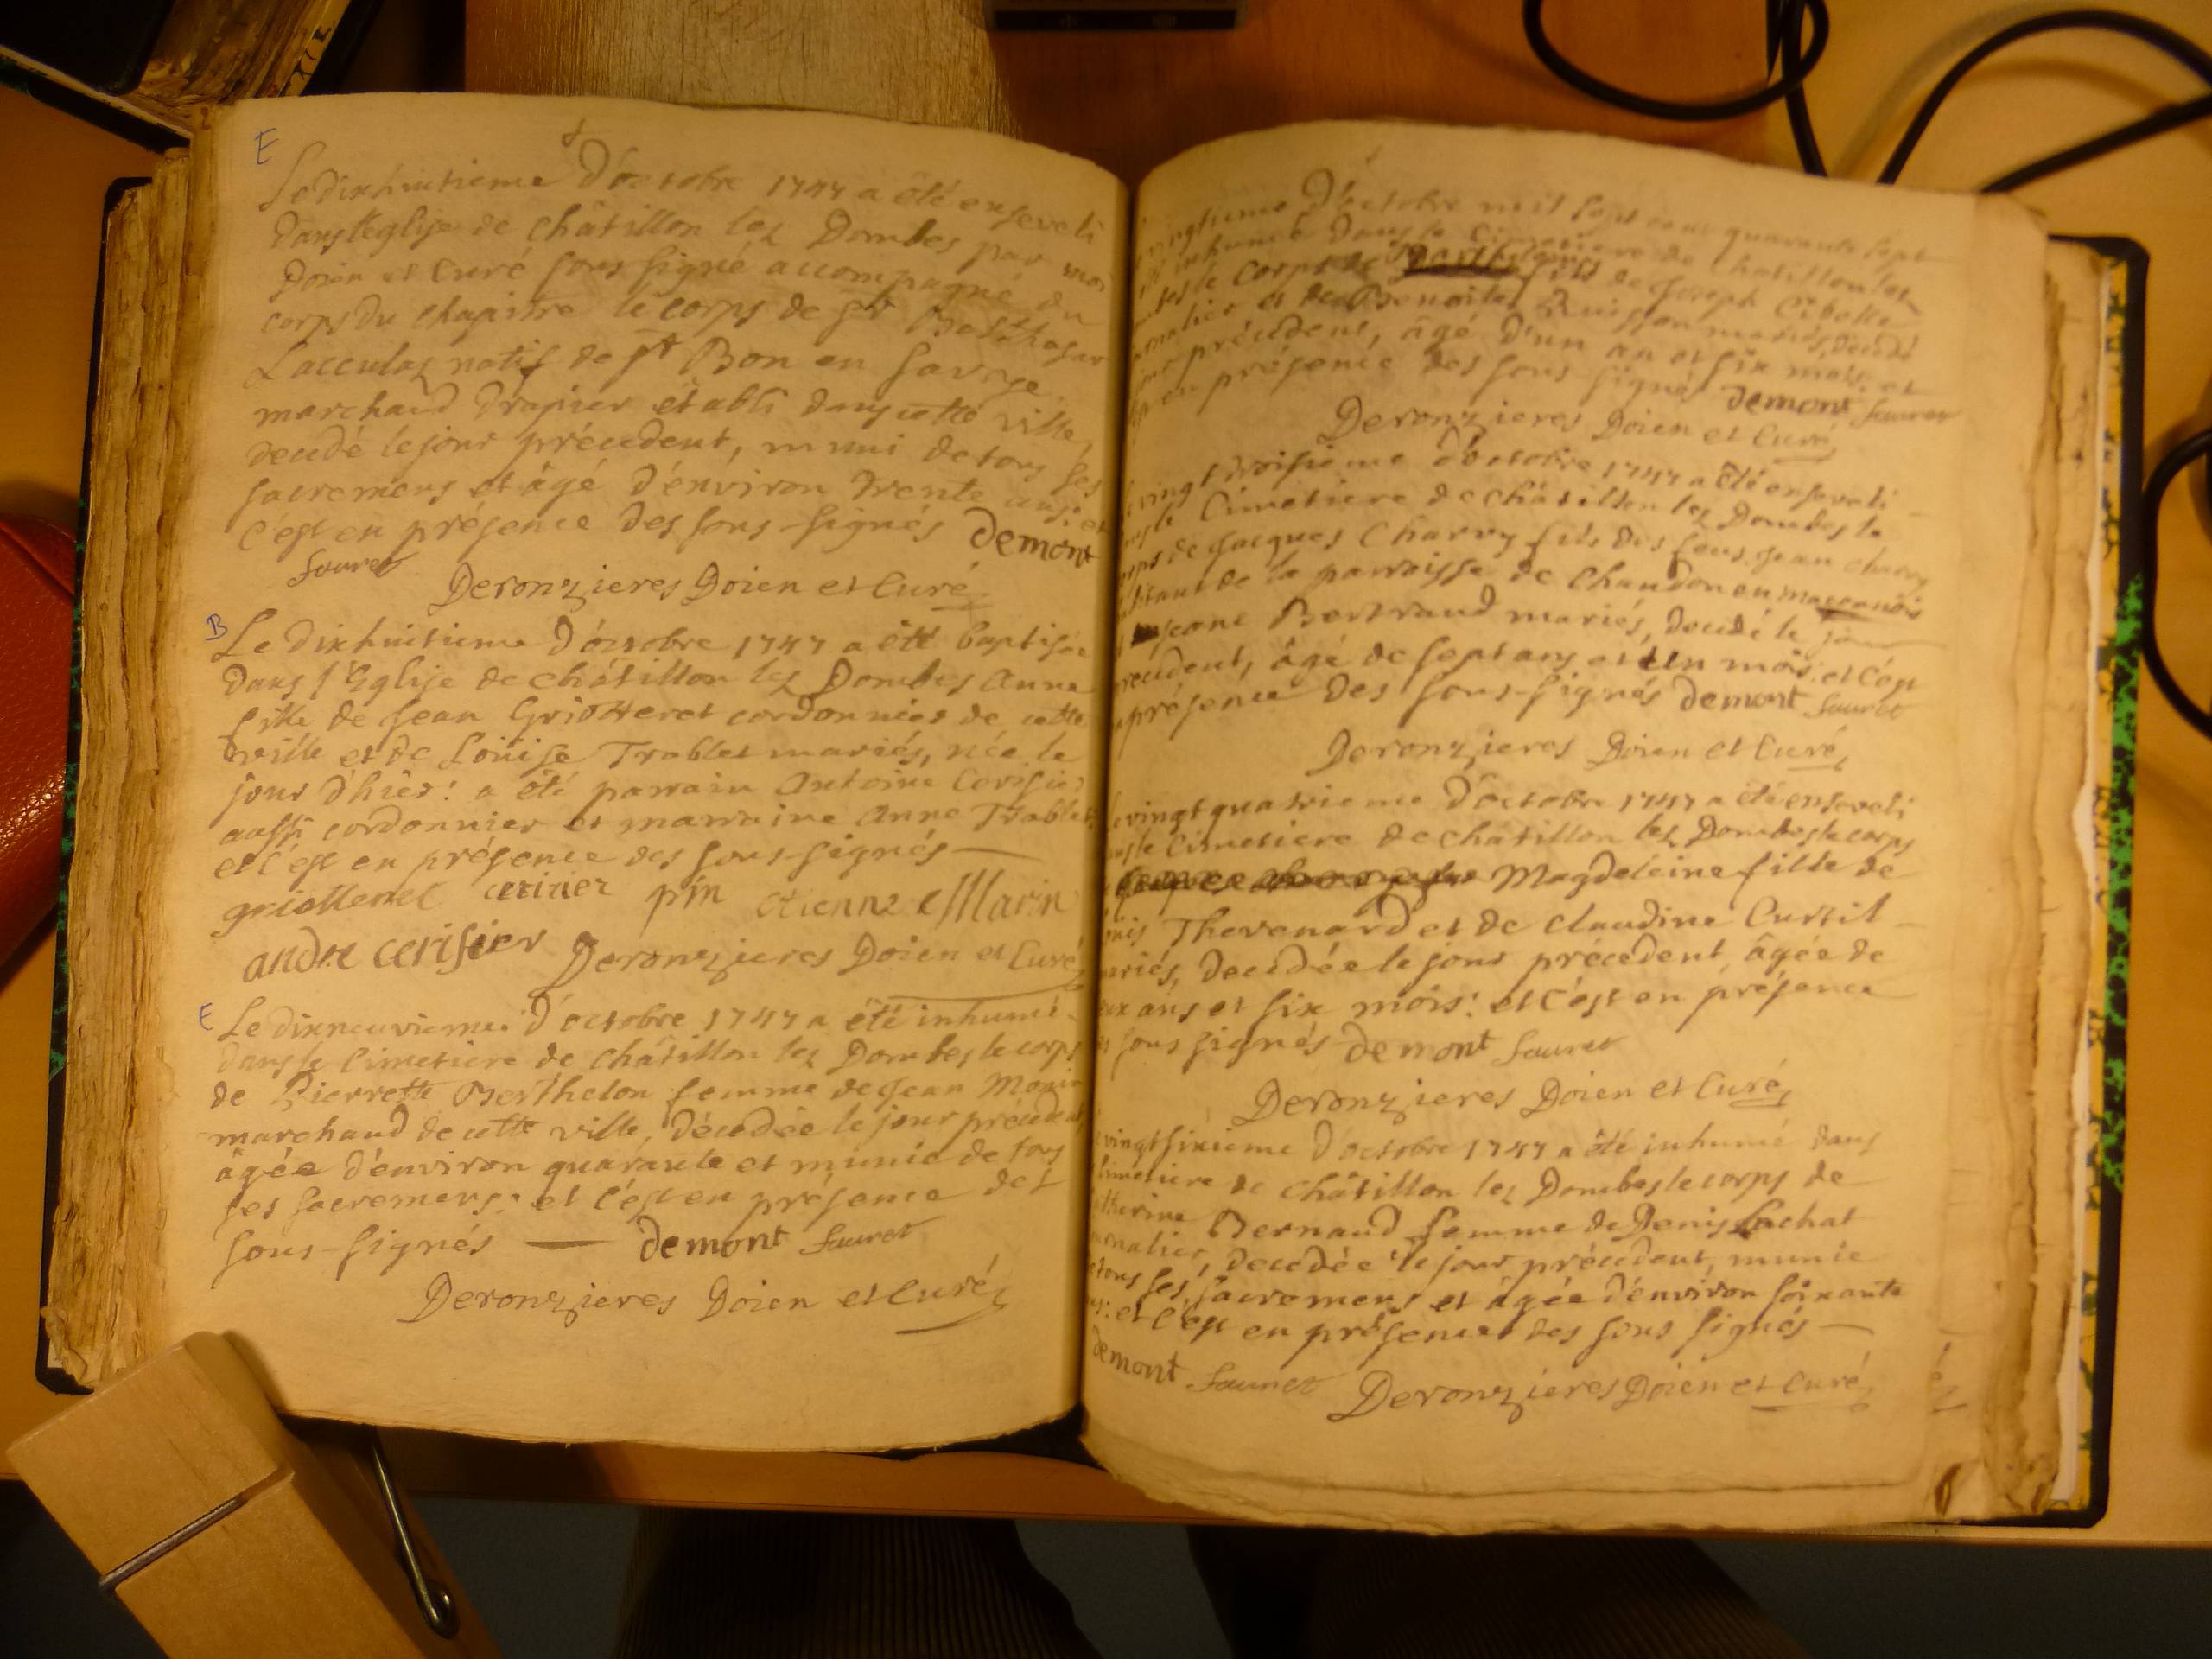 E
Le dixhuitieme D'octobre 1747 a été enseveli
Dans l'église de châtillon lez Dombes par moi
Doien et Curé sous signé accompagné du
corps du chapitre le corps de sr Balthasar
natif de st Bon en savoye
marchand Drapier établi dans cette ville
décédé le jour précédent, muni de tous ses
sacremens et âgé d'environ trente ans: et
c'est en présence des sous-signés demont
Sauret
Deronzieres Doien et Curé
B
Le dixhuitieme D'octobre 1747 a été baptisée
Dans l'Eglise de châtillon lez Dombes Anne
fille de Jean Griotteret cordonnier de cette
ville et de Louise Trablet mariés, née le
jour d'hier: a été parrain Antoine Cerisier
aussi cordonnier et marraine Anne Trablet
et c'est en présence des sous-signés
griotteret cerisier pin etienne Marin
andre cerisier Deronzieres Doien et Curé
E
Le dixneuvieme D'octobre 1747 a été inhumé
Dans le Cimetiere de châtillon lez Dombes le corps
de Pierrette Berthelon femme de Jean Monin
marchand de cette ville, décédée le jour précédent
âgée d'environ quarante et munie de tous
ses sacremens: et c'est en présence des
sous-signés demont Sauret
Deronzieres Doien et Curé
vingtieme D'octobre mil sept cent quarante sept
été inhumé Dans le Cimetiere de Chatillon les
le corps de fils de Joseph Cibelle
et de Benoite Buisson mariés, décédé
jour précédent, âgé d'un an et six mois: et
c'est en présence des sous-signés demont Sauret
Deronzieres Doien et Curé
vingt troisieme d'octobre 1747 a été enseveli
Cimetiere de châtillon lez Dombes le
corps de Jacques Charry fils des feus Jean charry
habitant de la parroisse de Chandon en maconois
Jeane Bertrand mariés, décédé le jour
précédent, âgé de sept ans et un mois: et c'est
en présence des sous-signés demont Sauret
Deronzieres Doien et Curé
Le vingt quatrieme D'octobre 1747 a été enseveli
Cimetiere de châtillon lez Dombes le corps
Magdeleine fille de
Thevenard et de claudine Curtil
mariés, décédée le jour précédent, âgée de
ans et six mois: et c'est en présence
sous signés demont Sauret
Deronzieres Doien et Curé
vingt sixieme D'octobre 1747 a été inhumé dans
Cimetiere de châtillon lez Dombes le corps de
Catherine Bernaud femme de Denis Lachat
décédée le jour précédent, munie
de tous ses sacremens et âgée d'environ soixante
ans: et c'est en présence des sous signés
demont Sauret Deronzieres Doien et Curé